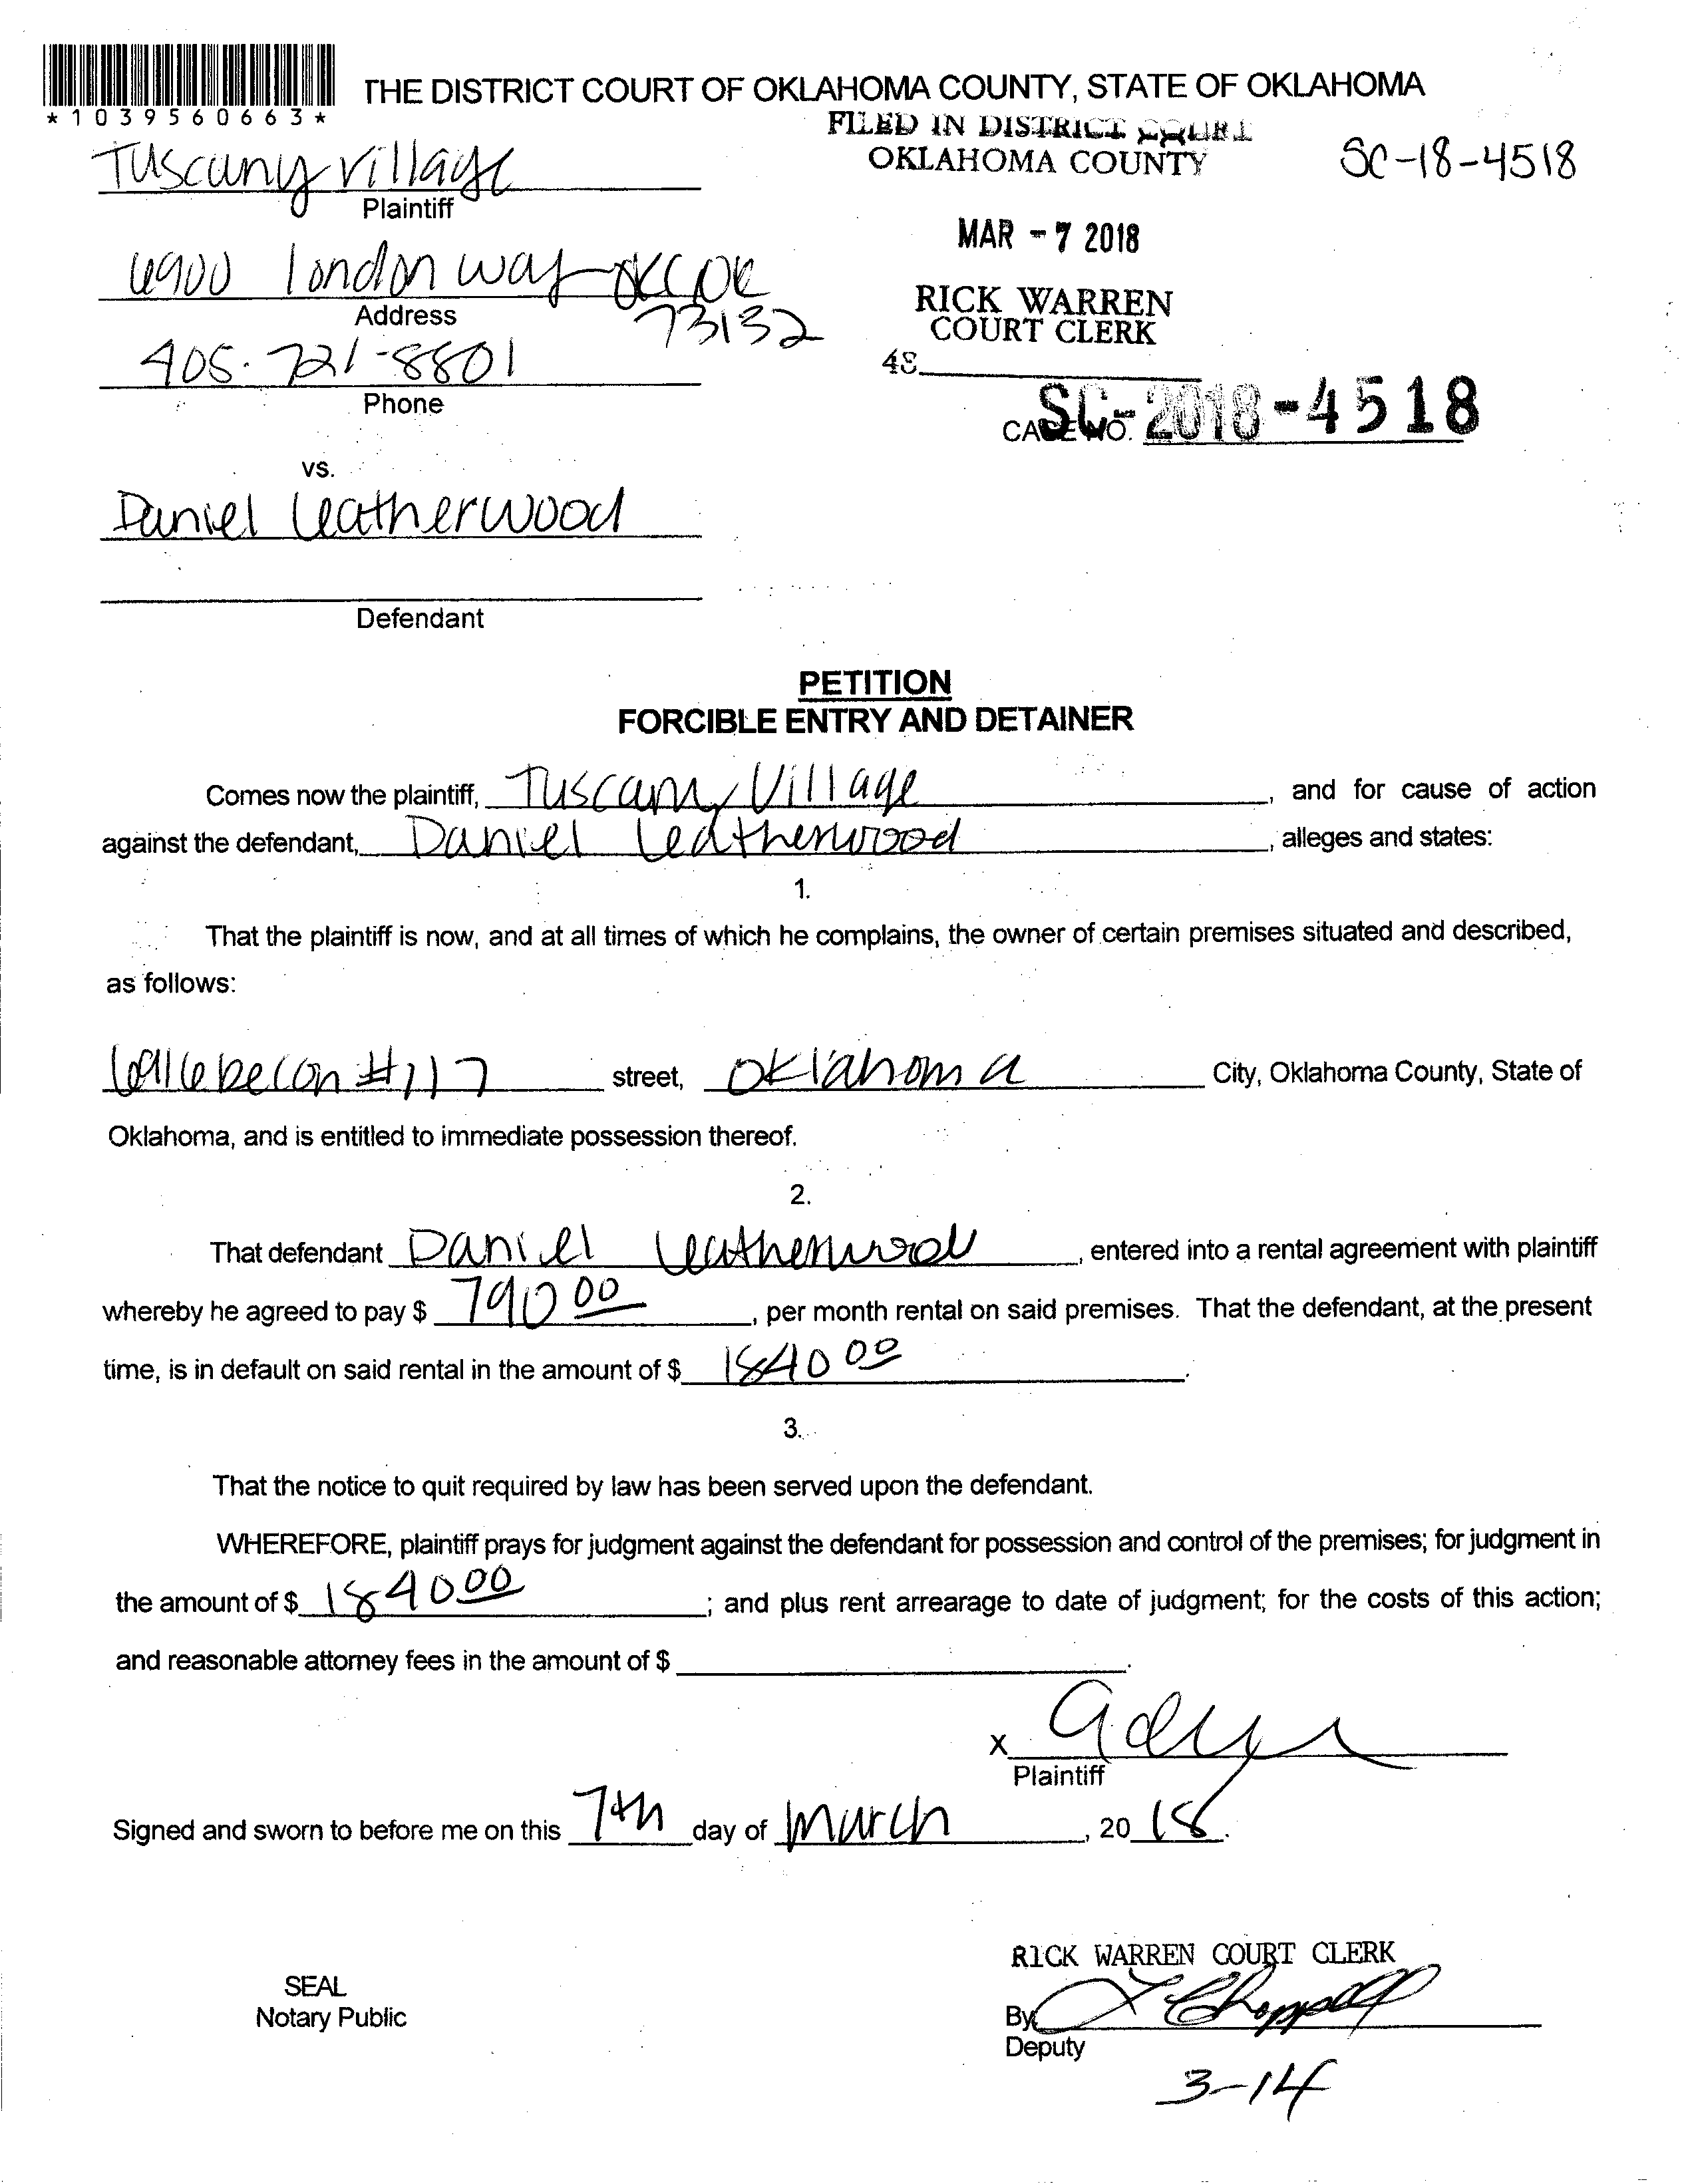 THE DISTRICT COURT OF OKLAHOMA COUNTY, STATE OF OKLAHOMA
*1039560663*
FILED IN DISTRICT COURT
OKLAHOMA COUNTY
SC-18-4518
Tuscany Village
Plaintiff
MAR - 7 2018
6900 london way OKC OK
73132
Address
RICK WARREN
COURT CLERK
405-721-8801
Phone
48
CASE NO. SC-2018-4518
vs.
Daniel Leatherwood
Defendant
PETITION
FORCIBLE ENTRY AND DETAINER
Comes now the plaintiff, Tuscany Village, and for cause of action
against the defendant, Daniel Leatherwood, alleges and states:
1.
That the plaintiff is now, and at all times of which he complains, the owner of certain premises situated and described,
as follows:
#117 street, Oklahoma City, Oklahoma County, State of
Oklahoma, and is entitled to immediate possession thereof.
2.
That defendant Daniel Leatherwood, entered into a rental agreement with plaintiff
whereby he agreed to pay $ 790 00, per month rental on said premises. That the defendant, at the present
time, is in default on said rental in the amount of $ 1840 00.
3.
That the notice to quit required by law has been served upon the defendant.
WHEREFORE, plaintiff prays for judgment against the defendant for possession and control of the premises; for judgment in
the amount of $ 1840 00; and plus rent arrearage to date of judgment; for the costs of this action;
and reasonable attorney fees in the amount of $ .
X
Plaintiff
Signed and sworn to before me on this 7th day of March, 2018.
RICK WARREN COURT CLERK
SEAL
Notary Public
By
Deputy
3-14